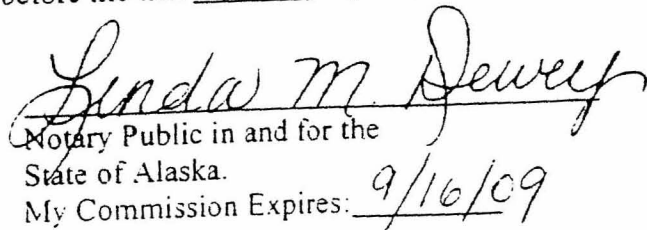 before me
Linda M. Dewey
Notary Public in and for the
State of Alaska.
My Commission Expires: 9/16/09